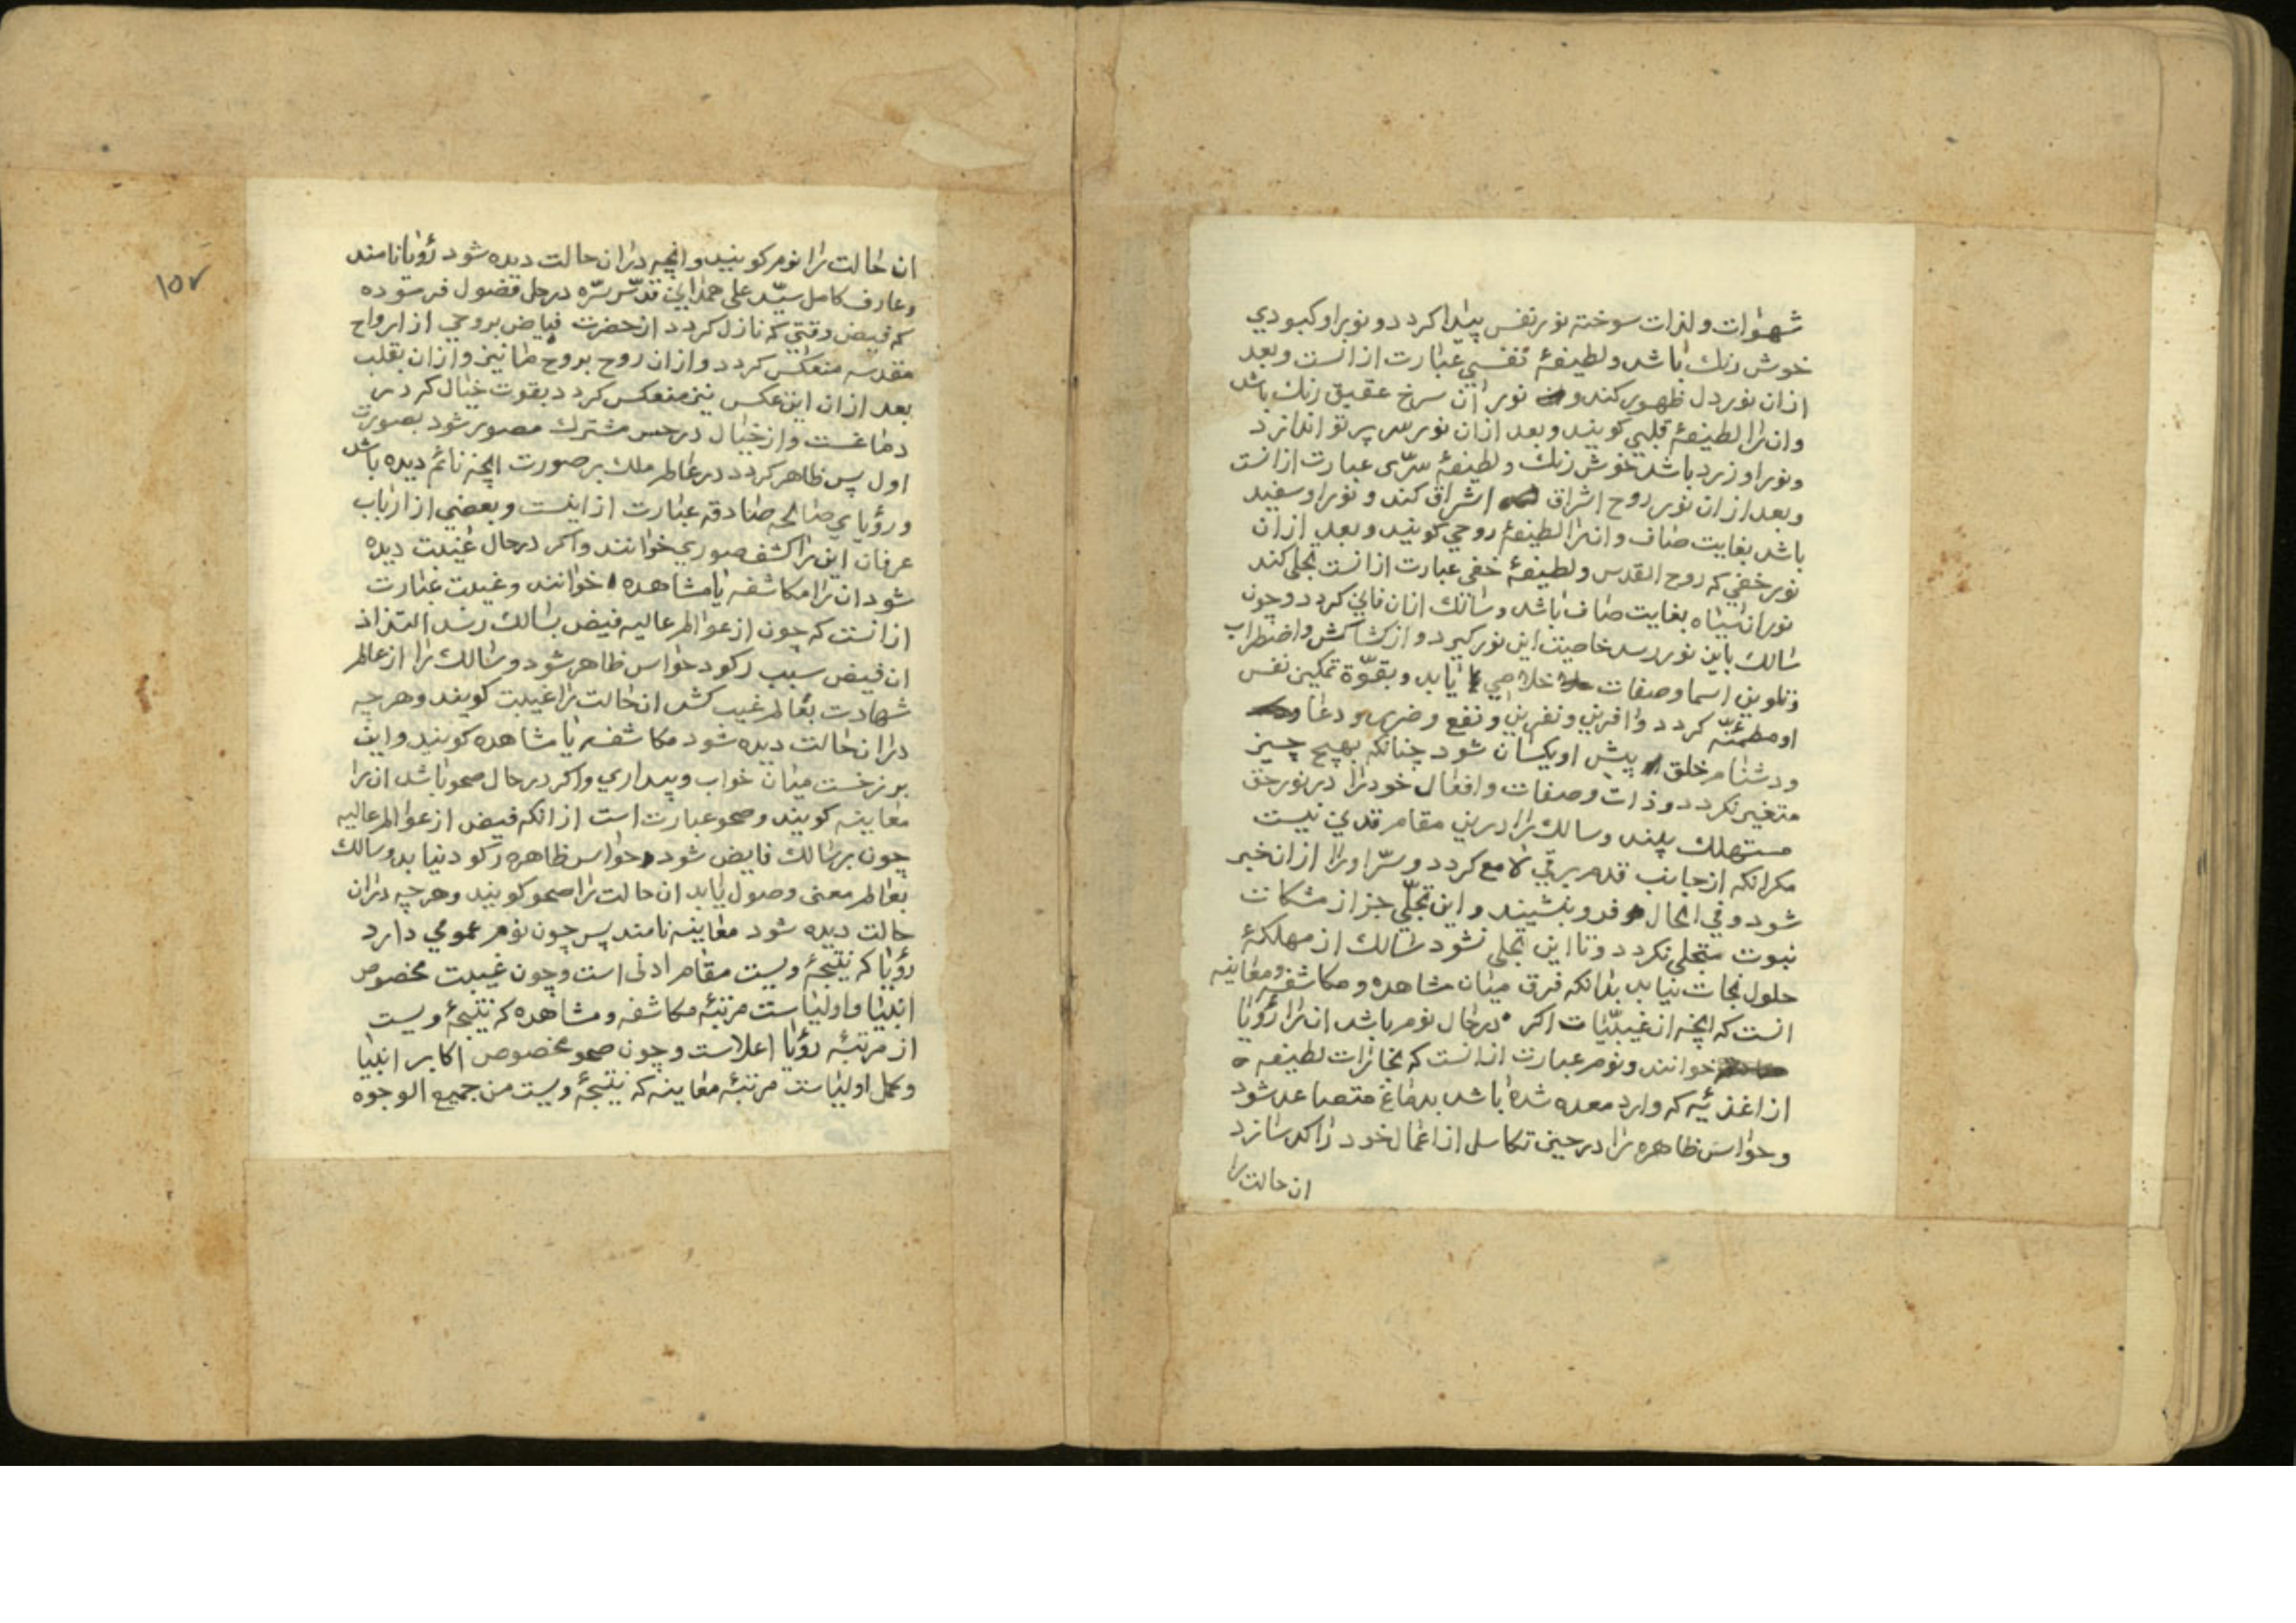 شهوات ولذات سوخته نور نفس پیدا کردد و نور او کبودی
خوش رنك باشد ولطیفهٔ نفسی عبارت از انست وبعد
از ان نور دل ظهور کند و نور ان سرخ عقیق رنك باشد
وان را لطیفهٔ قلبی کویند وبعد از ان نور سر پرتو اندازد
ونور او زرد باشد خوش رنك ولطیفهٔ سرّی عبارت از انست
وبعد از ان نور روح اشراق اشراق کند ونور او سفید
باشد بغایت صاف وانرا لطیفهٔ روحی کویند وبعد از ان
نور خفی که روح القدس ولطیفهٔ خفی عبارت از انست تجلی کند
نور ان سیاه بغایت صاف باشد وسالك از ان فانی کردد وچون
سالك باین نور رسد خاصیت این نور کیرد و از کشاکش واضطراب
وتلوین اسما وصفات خلاصی یابد وبقوّة تمکین نفس
او مطمئنّه کردد وافرین ونفرین ونفع وضرر ودعا
ودشنام خلق پیش او یکسان شود چنانکه بهیچ چیز
متغیر نکردد وذات وصفات وافعال خود را در نور حق
مستهلك بیند وسالك را درین مقام قدمی نیست
مکر انکه از جانب قدم برقی لامع کردد وسرّ او را از ان خبر
شود وفی الحال فرو نشیند واین تجلّی جز از مشکات
نبوت متجلی نکردد وتا این تجلی نشود سالك از مهلکهٔ
حلول نجات نیابد بدانکه فرق میان مشاهده ومکاشفه ومعاینه
انست که انچه از غیبیّات اکر درحال نوم باشد ان را رؤیا
خوانند ونوم عبارت از انست که بخارات لطیفه
از اغذیّه که وارد معده شده باشد بدماغ متصاعد شود
وحواس ظاهره را در حین تکاسل از اعمال خود راکد سازد
ان حالت را
۱۵۷
ان حالت را نوم کویند وانچه دران حالت دیده شود رؤیا نامند
وعارف کامل سیّد علی همدانی قدّس سرّه در حل فصول فرموده
که فیض وقتی که نازل کردد از حضرت فیاض بروحی از ارواح
مقدسه منعکس کردد وازان روح بروح ما نیز وازان بقلب
بعد از ان این عکس نیز منعکس کردد بقوت خیال که در
دماغست واز خیال در حس مشترك مصور شود بصورت
اول پس ظاهر کردد در عالم ملك بر صورت انچه نائم دیده باشد
ورؤیای صالحه صادقه عبارت از اینست وبعضی از ارباب
عرفان این را کشف صوری خوانند واکر درحال غیبت دیده
شود ان را مکاشفه یا مشاهده خوانند وغیبت عبارت
از انست که چون از عوالم عالیه فیض بسالك رسد التذاذ
ان فیض سبب رکود حواس ظاهر شود وسالك را از عالم
شهادت بعالم غیب کشد ان حالت را غیبت کویند وهر چه
دران حالت دیده شود مکاشفه یا مشاهده کویند واین
برزخست میان خواب وبیداری واکر درحال صحو باشد ان را
معاینه کویند وصحو عبارت است از انکه فیض از عوالم عالیه
چون بر سالك فایض شود حواس ظاهره رکود نیابد وسالك
بعالم معنی وصول یابد ان حالت را صحو کویند وهر چه دران
حالت دیده شود معاینه نامند پس چون نوم عمومی دارد
رؤیا که نتیجهٔ ویست مقام ادنی است وچون غیبت مخصوص
انبیا واولیاست مرتبهٔ مکاشفه ومشاهده که نتیجهٔ ویست
از مرتبهٔ رؤیا اعلاست وچون صحو مخصوص اکابر انبیا
وکمل اولیاست مرتبهٔ معاینه که نتیجهٔ ویست من جمیع الوجوه